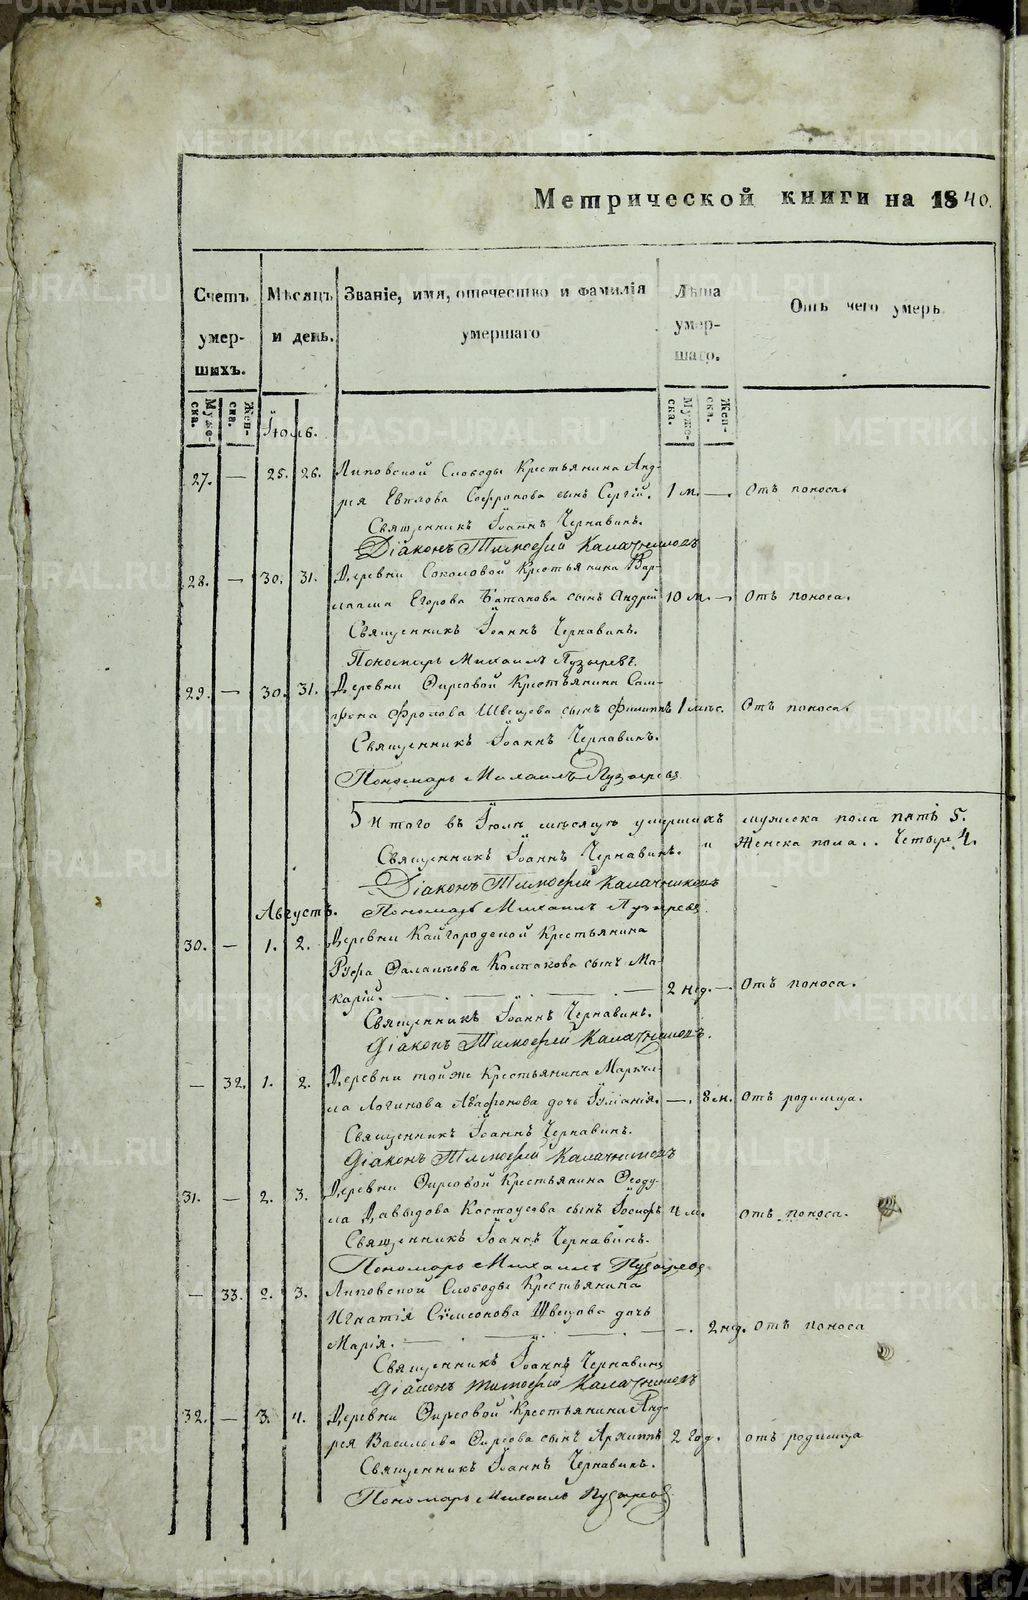 Метрической книги на 1840.
Счетъ умер-шихъ.
Мѣсяцъ и день.
Званіе, имя, отечество и фамилія умершаго
Лѣта умер-шаго.
Отъ чего умеръ
Муже-ска.
Жен-ска.
Муже-ска.
Жен-ска.
Іюль.
27. — 25. 26. Липовской Слободы Крестьянина Анд-
рея Евплова Софронова сынъ Сергій. 1 м. —. Отъ поноса.
Священникъ Іоаннъ Чернавинъ.
Діаконъ Тимофей Калачниковъ
28. — 30. 31. Деревни Соколовой Крестьянина Вар-
лаама Егорова сынъ Андрей 10 м. —. Отъ поноса.
Священникъ Іоаннъ Чернавинъ.
Пономарь Михаилъ Пузыревъ.
29. — 30. 31. Деревни Фирсовой Крестьянина Сам-
сона Фролова Швецова сынъ Филиппъ 1 мѣс. Отъ поноса.
Священникъ Іоаннъ Чернавинъ.
Пономарь Михаилъ Пузыревъ
5 Итого въ Іюлѣ мѣсяцѣ умершихъ мужеска пола пять 5.
и Женска пола.. Четыре 4.
Священникъ Іоаннъ Чернавинъ.
Діаконъ Тимофей Калачниковъ
Августъ. Пономарь Михаилъ Пузыревъ
30. — 1. 2. Деревни Кайгородской Крестьянина
Руфа Колпакова сынъ Ма-
карій. — 2 нед. —. Отъ поноса.
Священникъ Іоаннъ Чернавинъ.
Діаконъ Тимофей Калачниковъ.
— 32. 1. 2. Деревни тойже Крестьянина Маркел-
ла Логинова Агафонова дочь Іуліанія. —. 8 м. Отъ родимца.
Священникъ Іоаннъ Чернавинъ.
Діаконъ Тимофей Калачниковъ
31. — 2. 3. Деревни Фирсовой Крестьянина Ѳеоду-
ла Давыдова Костоусова сынъ Іосифъ 4 м. Отъ поноса.
Священникъ Іоаннъ Чернавинъ.
Пономарь Михаилъ Пузыревъ
— 33. 2. 3. Липовской Слободы Крестьянина
Игнатія Сѵмеонова Швецова дочь
Марія. — —. 2 нед. Отъ поноса
Священникъ Іоаннъ Чернавинъ
Діаконъ Тимофей Калачниковъ
32. — 3. 4. Деревни Фирсовой Крестьянина Анд-
рея Васильева Фирсова сынъ Архиппъ 2 год. отъ родимца
Священникъ Іоаннъ Чернавинъ.
Пономарь Михаилъ Пузыревъ
METRIKI.GASO-URAL.RU